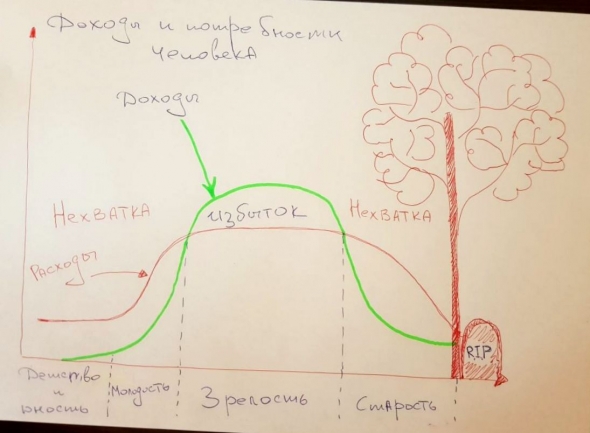 Доходы и потребности
человека
Доходы
Нехватка
избыток
Нехватка
Расходы
RIP
Детство
и
юность
Молодость
Зрелость
Старость